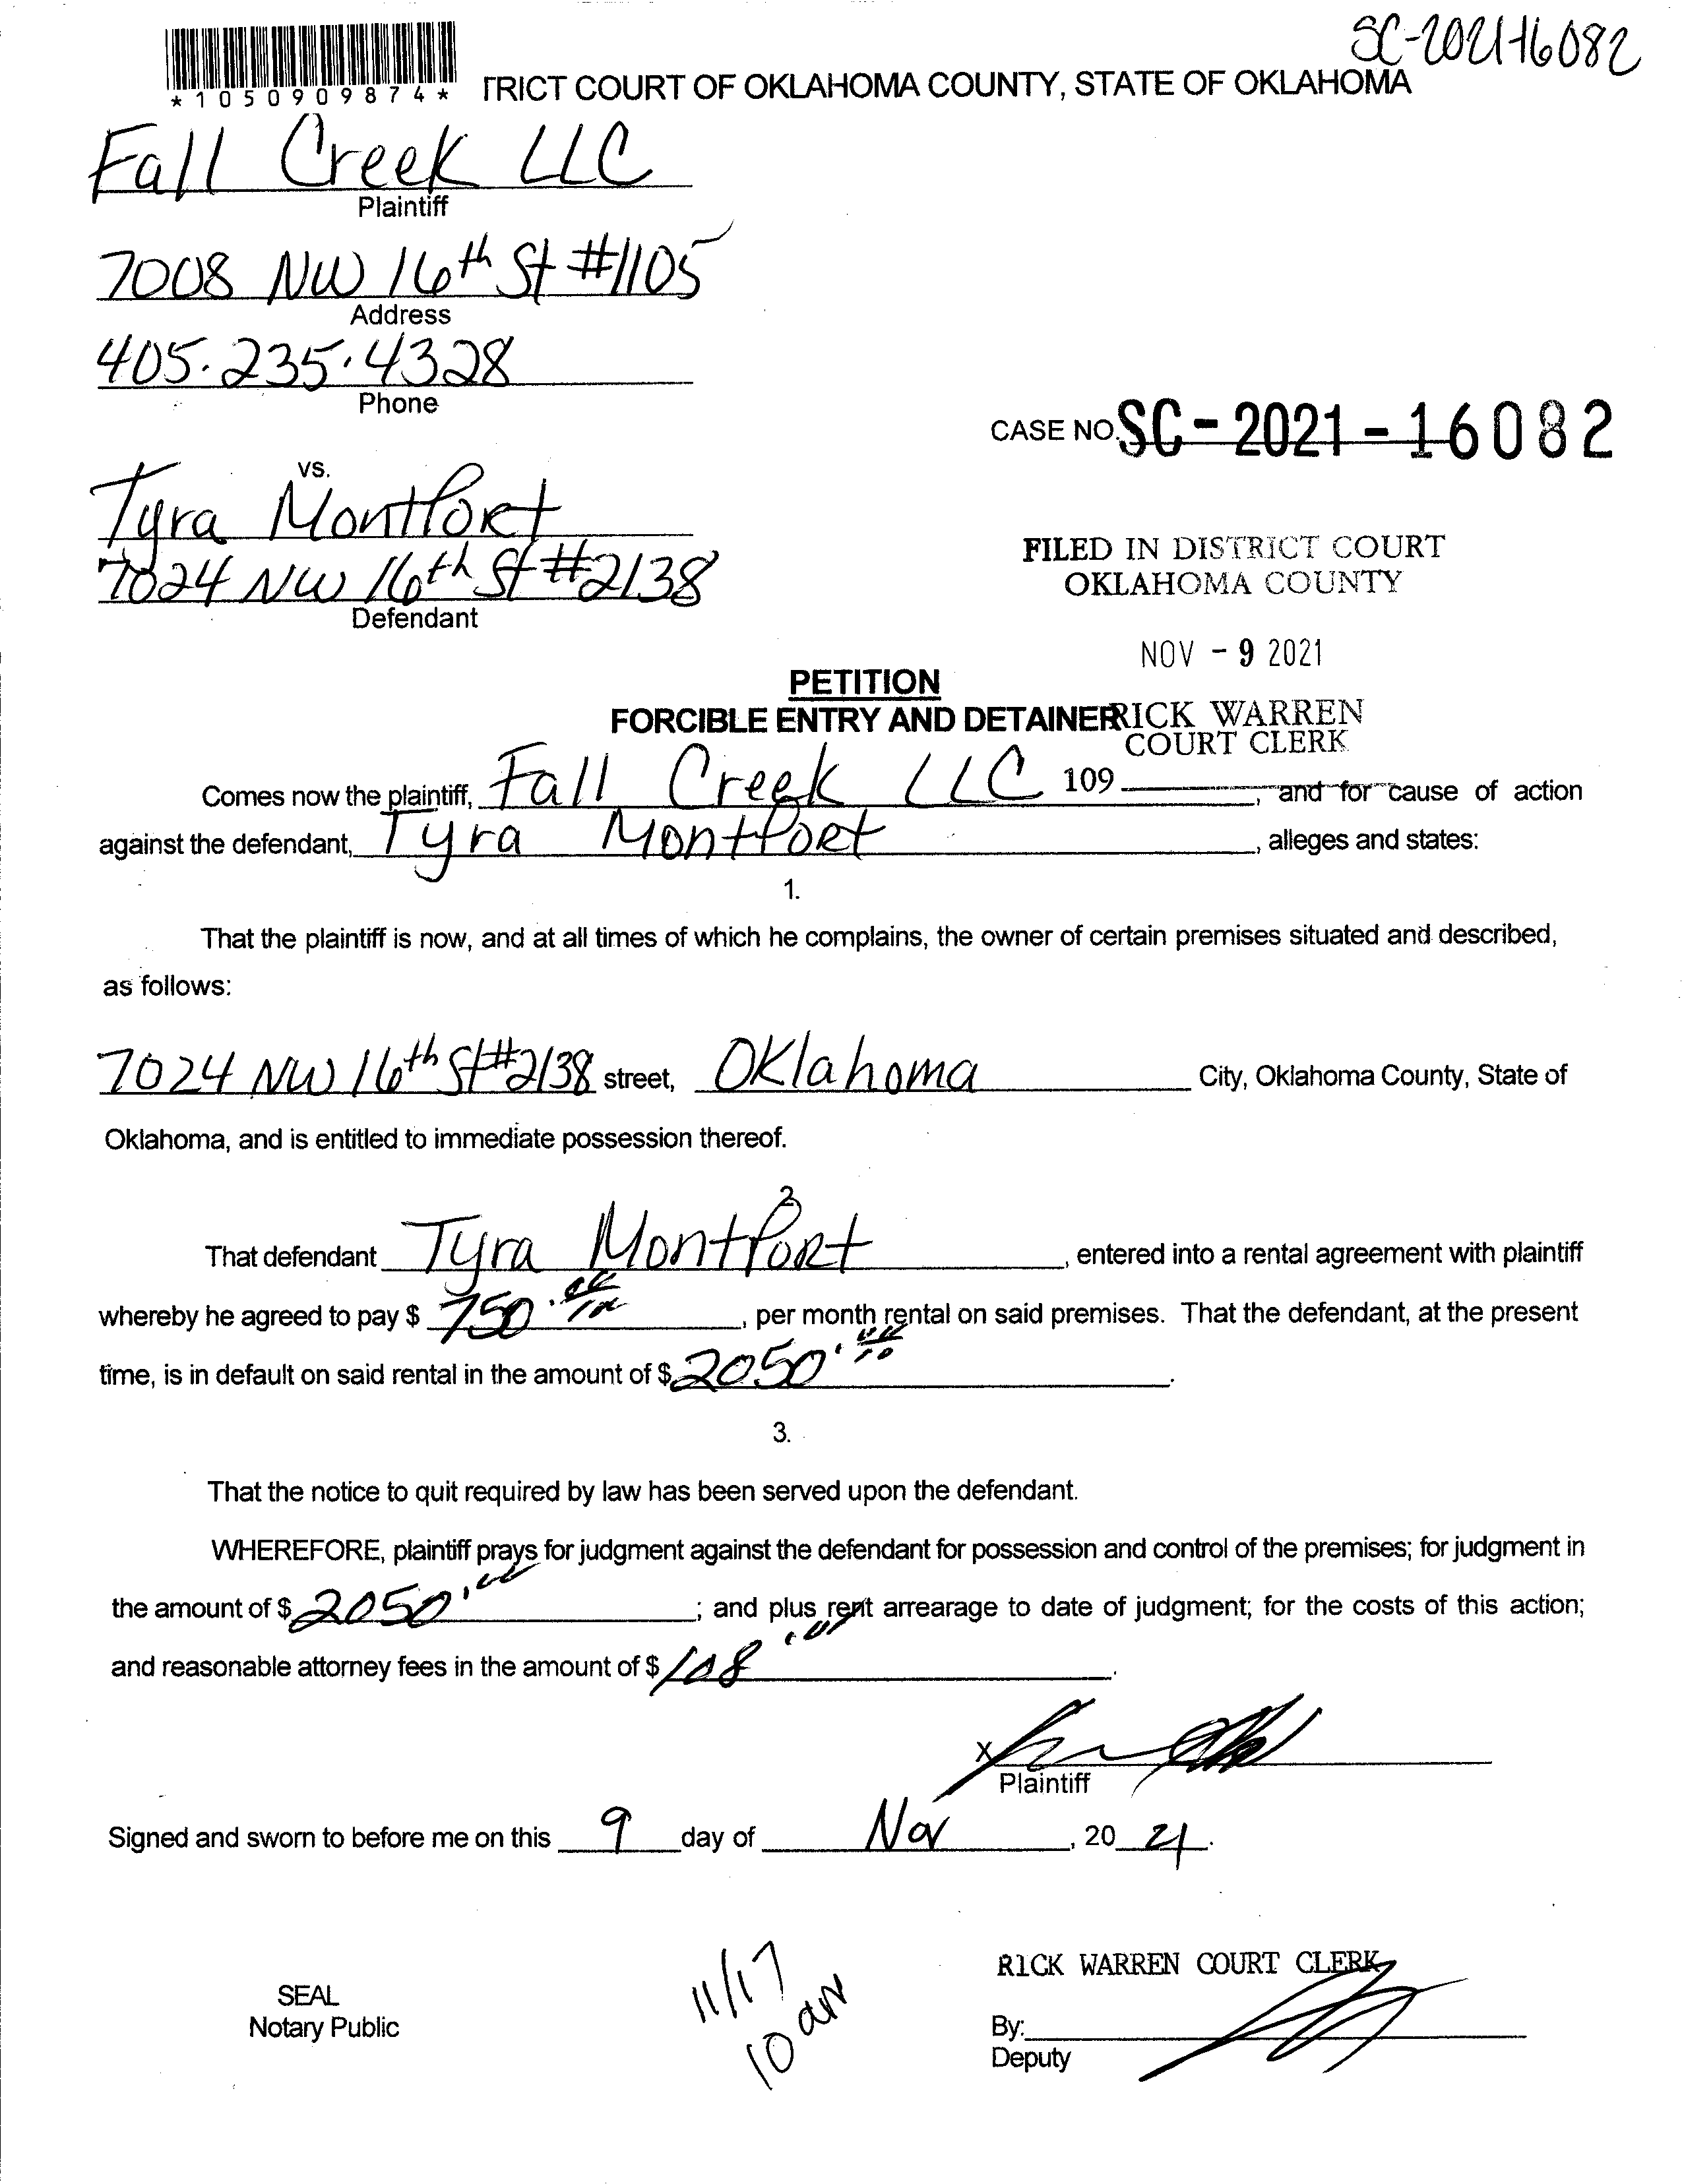 SC-2021-16082
*1050909874*
TRICT COURT OF OKLAHOMA COUNTY, STATE OF OKLAHOMA
Fall Creek LLC
Plaintiff
7008 NW 16th St #1105
Address
405.235.4328
Phone
CASE NO. SC-2021-16082
vs.
Tyra Montfort
7024 NW 16th St #2138
Defendant
FILED IN DISTRICT COURT
OKLAHOMA COUNTY
NOV - 9 2021
PETITION
FORCIBLE ENTRY AND DETAINER
RICK WARREN
COURT CLERK
109
Comes now the plaintiff, Fall Creek LLC, and for cause of action
against the defendant, Tyra Montfort, alleges and states:
1.
That the plaintiff is now, and at all times of which he complains, the owner of certain premises situated and described,
as follows:
7024 NW 16th St #2138 street, Oklahoma City, Oklahoma County, State of
Oklahoma, and is entitled to immediate possession thereof.
2
That defendant Tyra Montfort, entered into a rental agreement with plaintiff
whereby he agreed to pay $ 750. , per month rental on said premises. That the defendant, at the present
time, is in default on said rental in the amount of $ 2050. .
3.
That the notice to quit required by law has been served upon the defendant.
WHEREFORE, plaintiff prays for judgment against the defendant for possession and control of the premises; for judgment in
the amount of $ 2050. ; and plus rent arrearage to date of judgment; for the costs of this action;
and reasonable attorney fees in the amount of $ 108 .
X
Plaintiff
Signed and sworn to before me on this 9 day of Nov, 20 21.
SEAL
Notary Public
11/17
10 am
RICK WARREN COURT CLERK
By:
Deputy